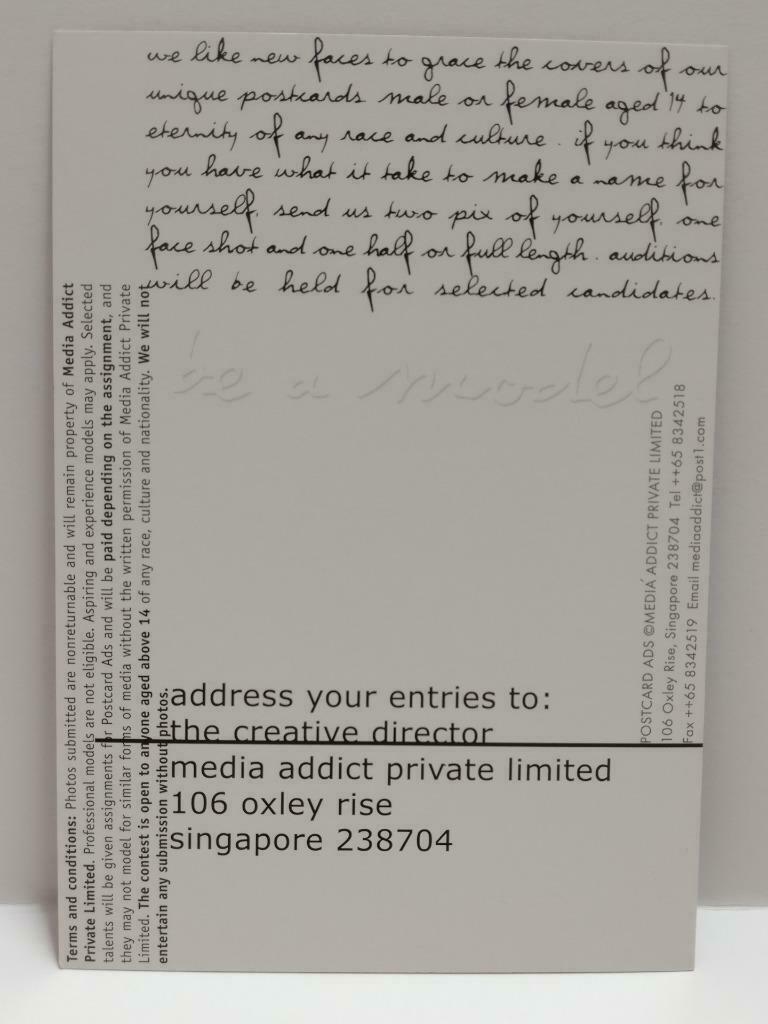 we like new faces to grace the covers of our
unique postcards male or female aged 14 to
eternity of any race and culture . if you think
you have what it take to make a name for
yourself, send us two pix of yourself, one
face shot and one half or full length . auditions
will be held for selected candidates.
be a model
Terms and conditions: Photos submitted are nonreturnable and will remain property of Media Addict
Private Limited. Professional models are not eligible. Aspiring and experience models may apply. Selected
talents will be given assignments for Postcard Ads and will be paid depending on the assignment, and
they may not model for similar forms of media without the written permission of Media Addict Private
Limited. The contest is open to anyone aged above 14 of any race, culture and nationality. We will not
entertain any submission without photos.
POSTCARD ADS ©MEDIÁ ADDICT PRIVATE LIMITED
106 Oxley Rise, Singapore 238704 Tel ++65 8342518
Fax ++65 8342519 Email mediaaddict@post1.com
address your entries to:
the creative director
media addict private limited
106 oxley rise
singapore 238704